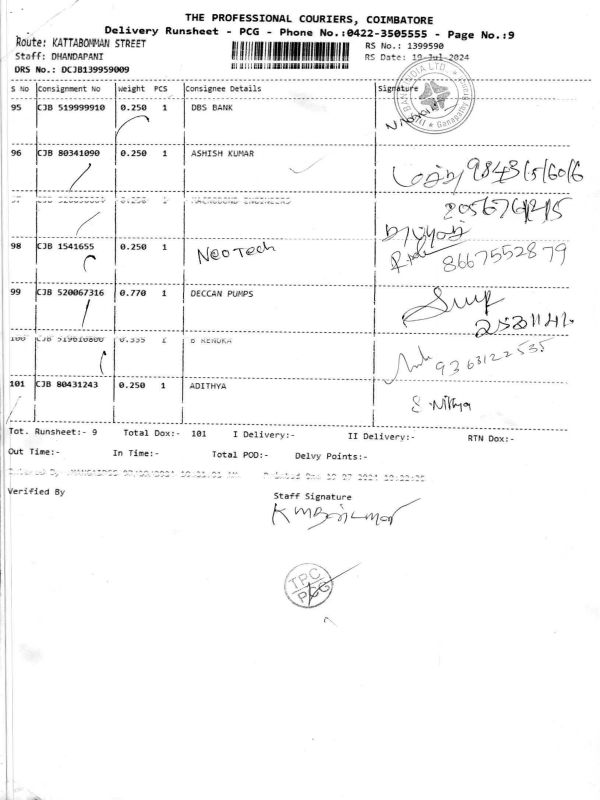 THE PROFESSIONAL COURIERS, COIMBATORE
Delivery Runsheet - PCG - Phone No.:0422-3505555 - Page No.:9
Route: KATTABOMMAN STREET
RS No.: 1399590
Staff: DHANDAPANI
RS Date: 19-Jul-2024
DRS No.: DCJB139959009
S No Consignment No Weight PCS Consignee Details Signature
95 CJB 519999910 0.250 1 DBS BANK
BANK INDIA LTD
Ganapathy
96 CJB 80341090 0.250 1 ASHISH KUMAR
2056761215
98 CJB 1541655 0.250 1 NEOTECH
8667552879
99 CJB 520067316 0.770 1 DECCAN PUMPS
B RENUKA
9363122535
101 CJB 80431243 0.250 1 ADITHYA
S. Nithya
Tot. Runsheet:- 9 Total Dox:- 101 I Delivery:- II Delivery:- RTN Dox:-
Out Time:- In Time:- Total POD:- Delvy Points:-
Verified By
Staff Signature
TPC
PCG